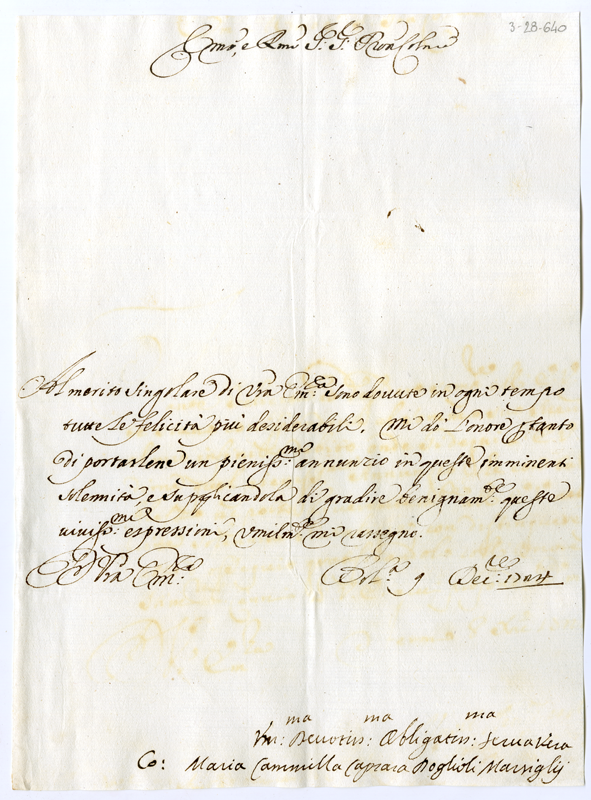 3-28-640
Emo, e Rmo Sr: Sr: Pron Colmo
Al merito singolare di Vra Emza: sono dovute in ogni tempo
tutte le felicità più desiderabili. Mi dò l'onore ꝑtanto
di portarlene un pienissmo: annunzio in queste imminenti
solennità, e supplicandola di gradire benignamte: queste
vivissme: espressioni, umilmte: mi rassegno.
D Vra Emza:
Bola 9 Decre:
Uma: Devotissma: Obligatissma: serva vera
Co: Maria Cammilla Caprara Boglioli Marsiglij